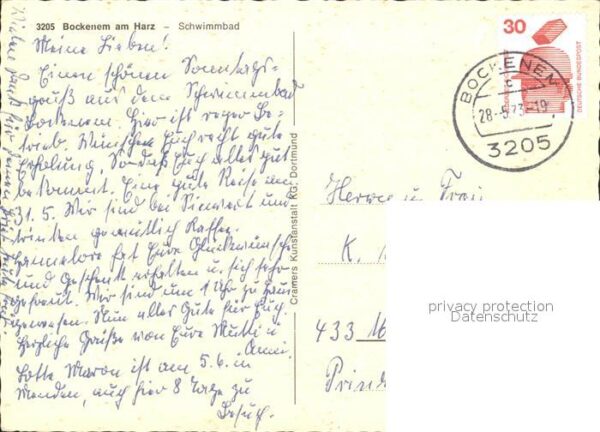 3205 Bockenem am Harz – Schwimmbad
Meine Lieben!
Einen schönen Sonntags-
gruß aus dem Schwimmbad
Bockenem. Hier ist reger Be-
trieb. Wünschen Euch recht gute
Erholung, Sodaß Euch alles gut
bekommt. Eine gute Reise am
31. 5. Wir sind bei und
trinken gemütlich Kaffee.
Hannelore hat Eure Glückwünsche
und Geschenk erhalten u. sich sehr
gefreut. Wir sind um 1 Uhr zu Haus
gewesen. Nun alles Gute für Euch.
Herzliche Grüße von Eure Mutti u.
Anni.
Lotte Maron ist am 5. 6. in
Menden, auch hier 8 Tage zu
Besuch.
Cramers Kunstanstalt KG, Dortmund
30
DEUTSCHE BUNDESPOST
BOCKENEM
c
28.-5.73.-19
3205
Herrn u. Frau
K.
433
privacy protection
Datenschutz